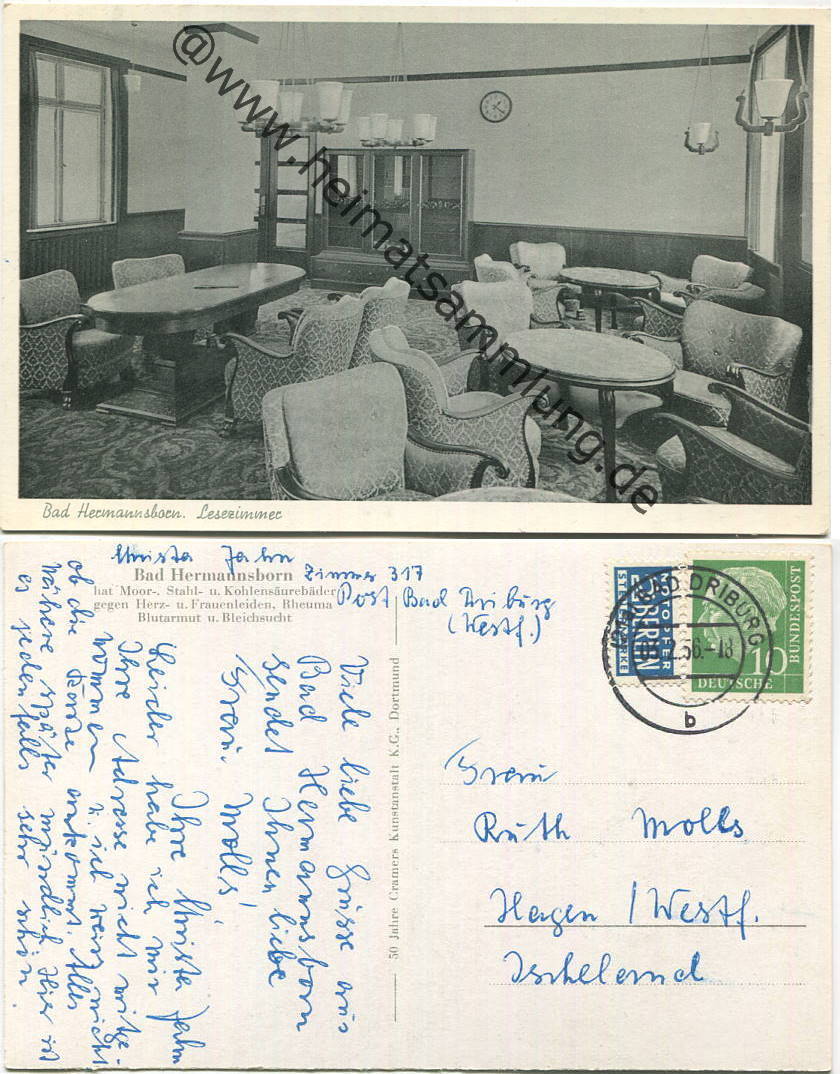 @www.heimatsammlung.de
Bad Hermannsborn. Lesezimmer
Christa Jahn
Zimmer 317
Post Bad Driburg
(Westf.)
Bad Hermannsborn
hat Moor-, Stahl- u. Kohlensäurebäder
gegen Herz- u. Frauenleiden, Rheuma
Blutarmut u. Bleichsucht
NOTOPFER
2 BERLIN
STEUERMARKE
BAD DRIBURG
03.2.56.-18
b
10
DEUTSCHE
BUNDESPOST
Viele liebe Grüsse aus
Bad Hermannsborn
sendet Ihnen liebe
Frau Molls!
Ihre Christa Jahn
Leider habe ich mir
Ihre Adresse nicht mitge-
nommen u. ich weiss nicht
ob die Karte ankommt. Alles
nähere später mündlich. Hier ist
es jedenfalls sehr schön.
50 Jahre Cramers Kunstanstalt K.G., Dortmund
Frau
Ruth Molls
Hagen / Westf.